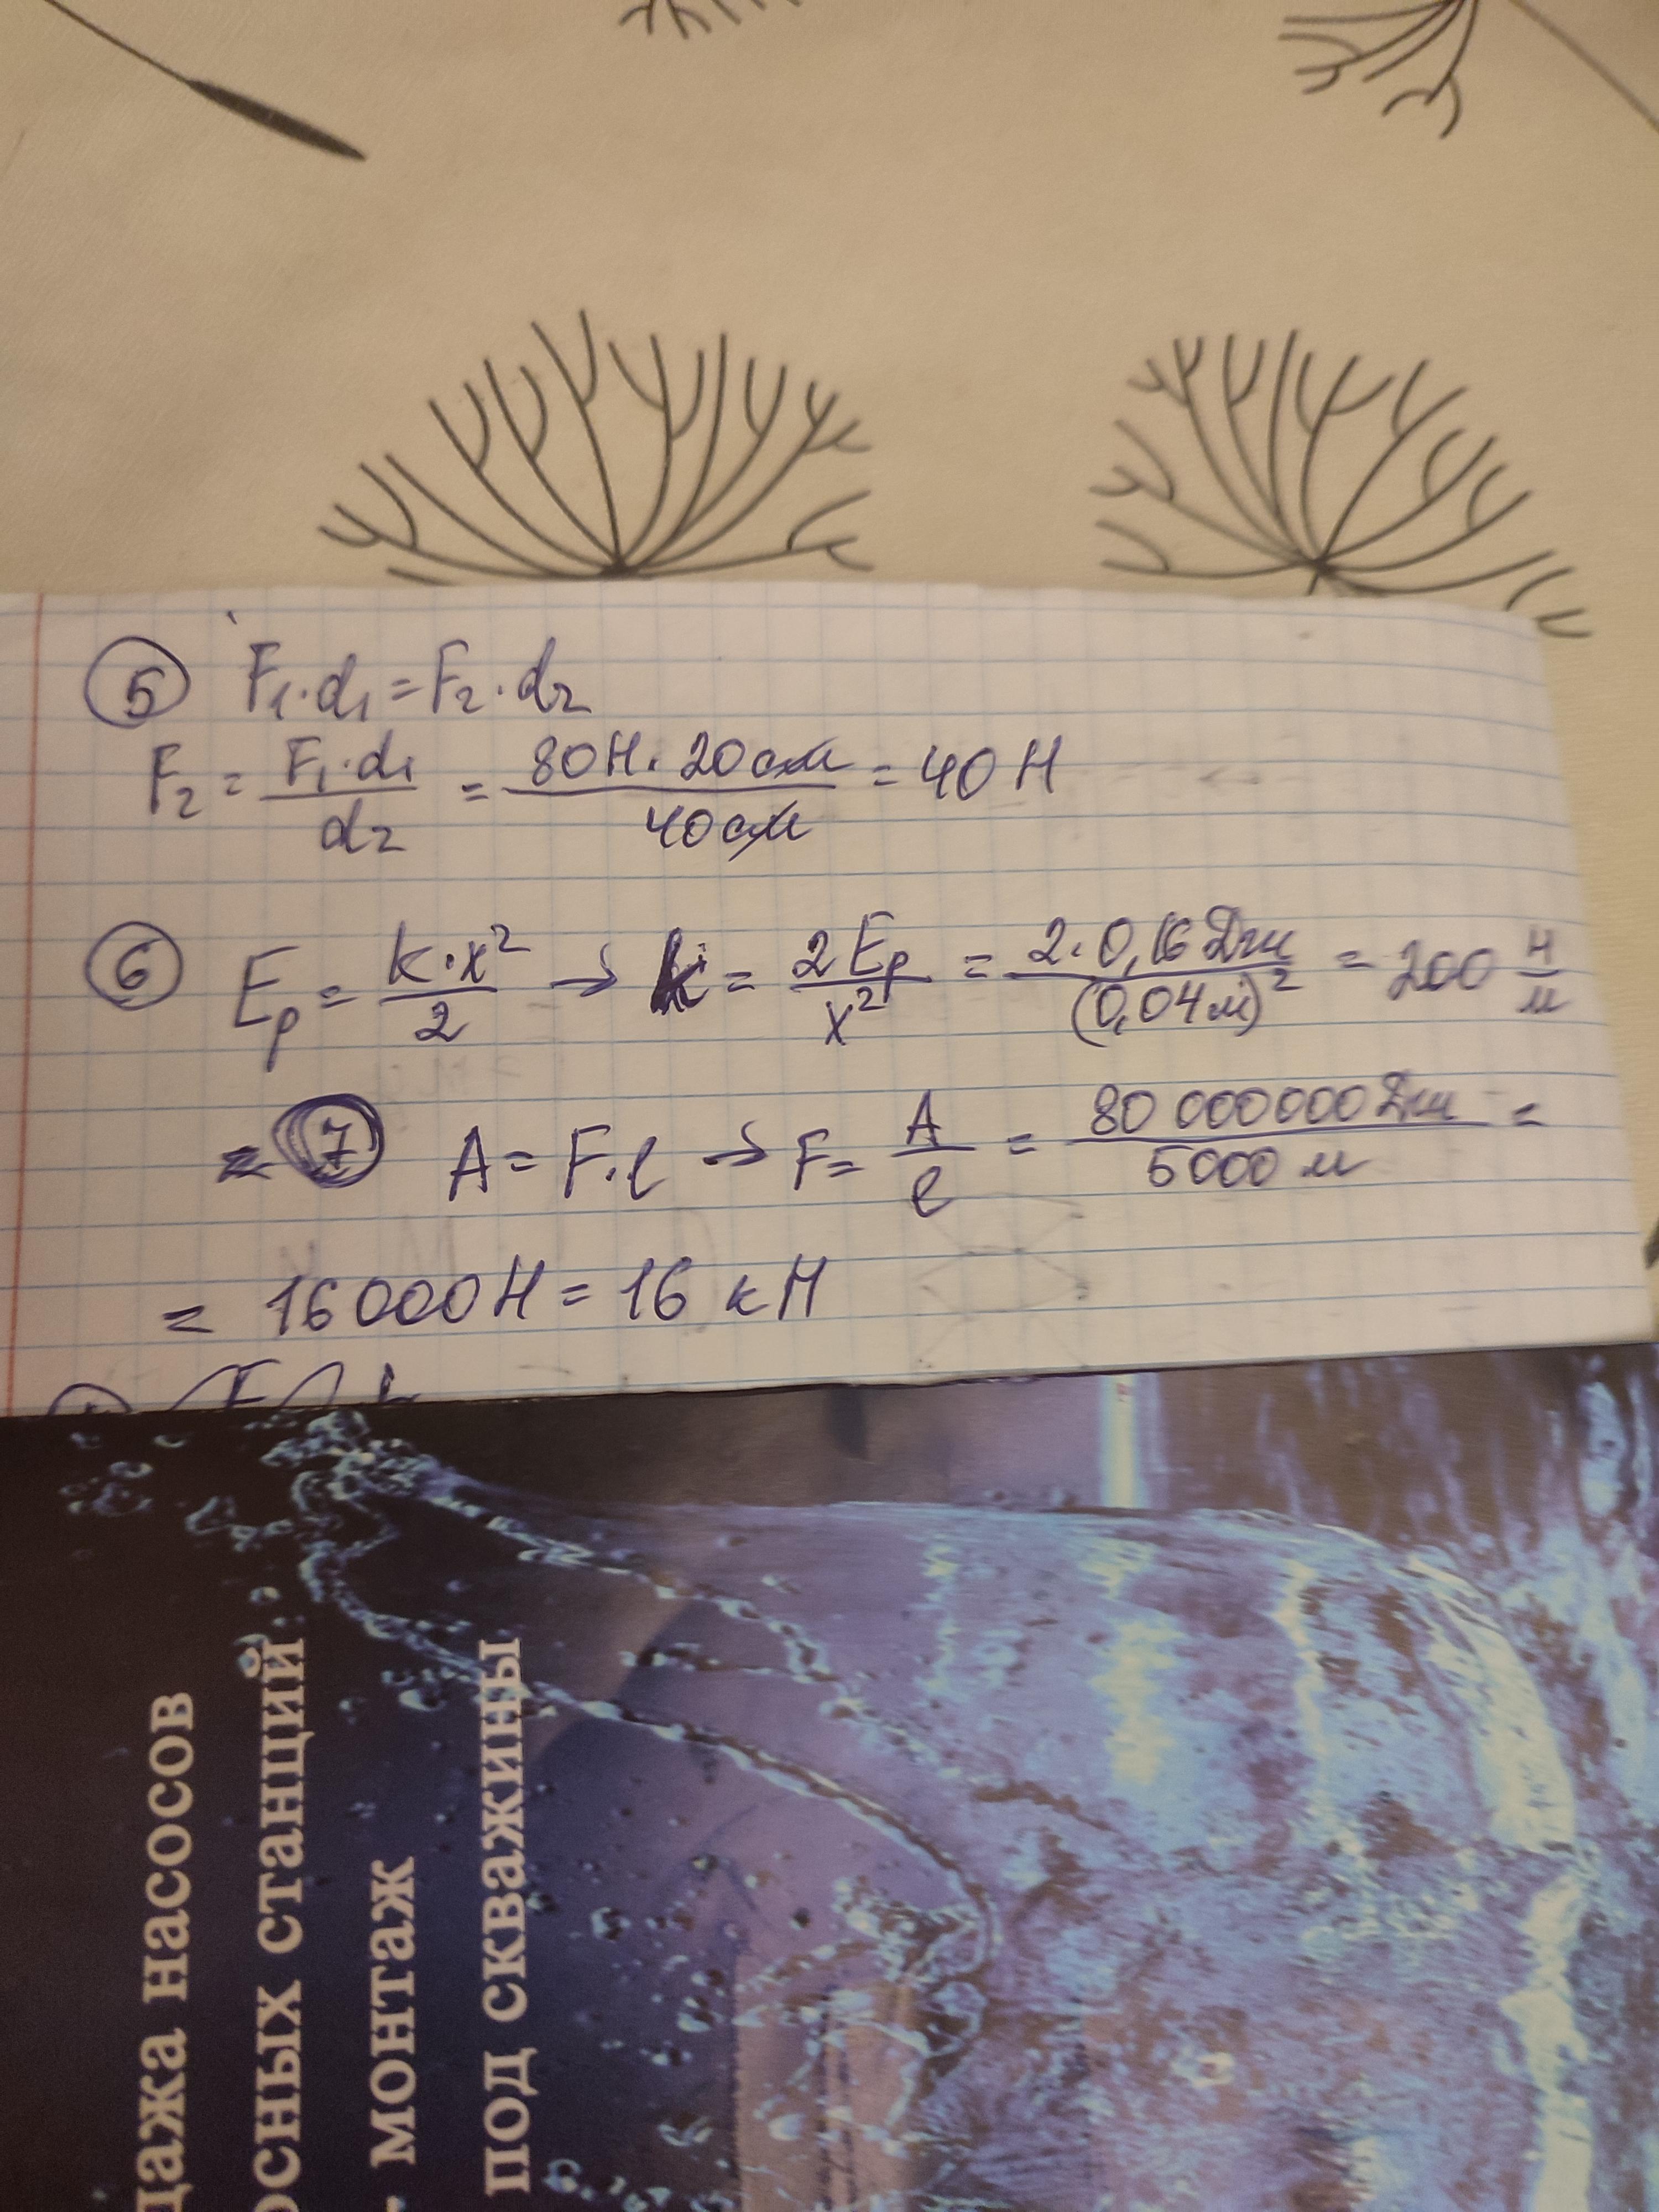 5 F₁·d₁=F₂·d₂
F₂ = F₁·d₁ / d₂ = 80Н·20см / 40см = 40 Н
6 Eₚ = k·x² / 2 → k = 2Eₚ / x² = 2·0,16 Дж / (0,04м)² = 200 Н/м
= 7 A = F·l → F = A / l = 80 000 000 Дж / 5000 м =
= 16 000 Н = 16 кН
дажа насосов
осных станций
монтаж
под скважины